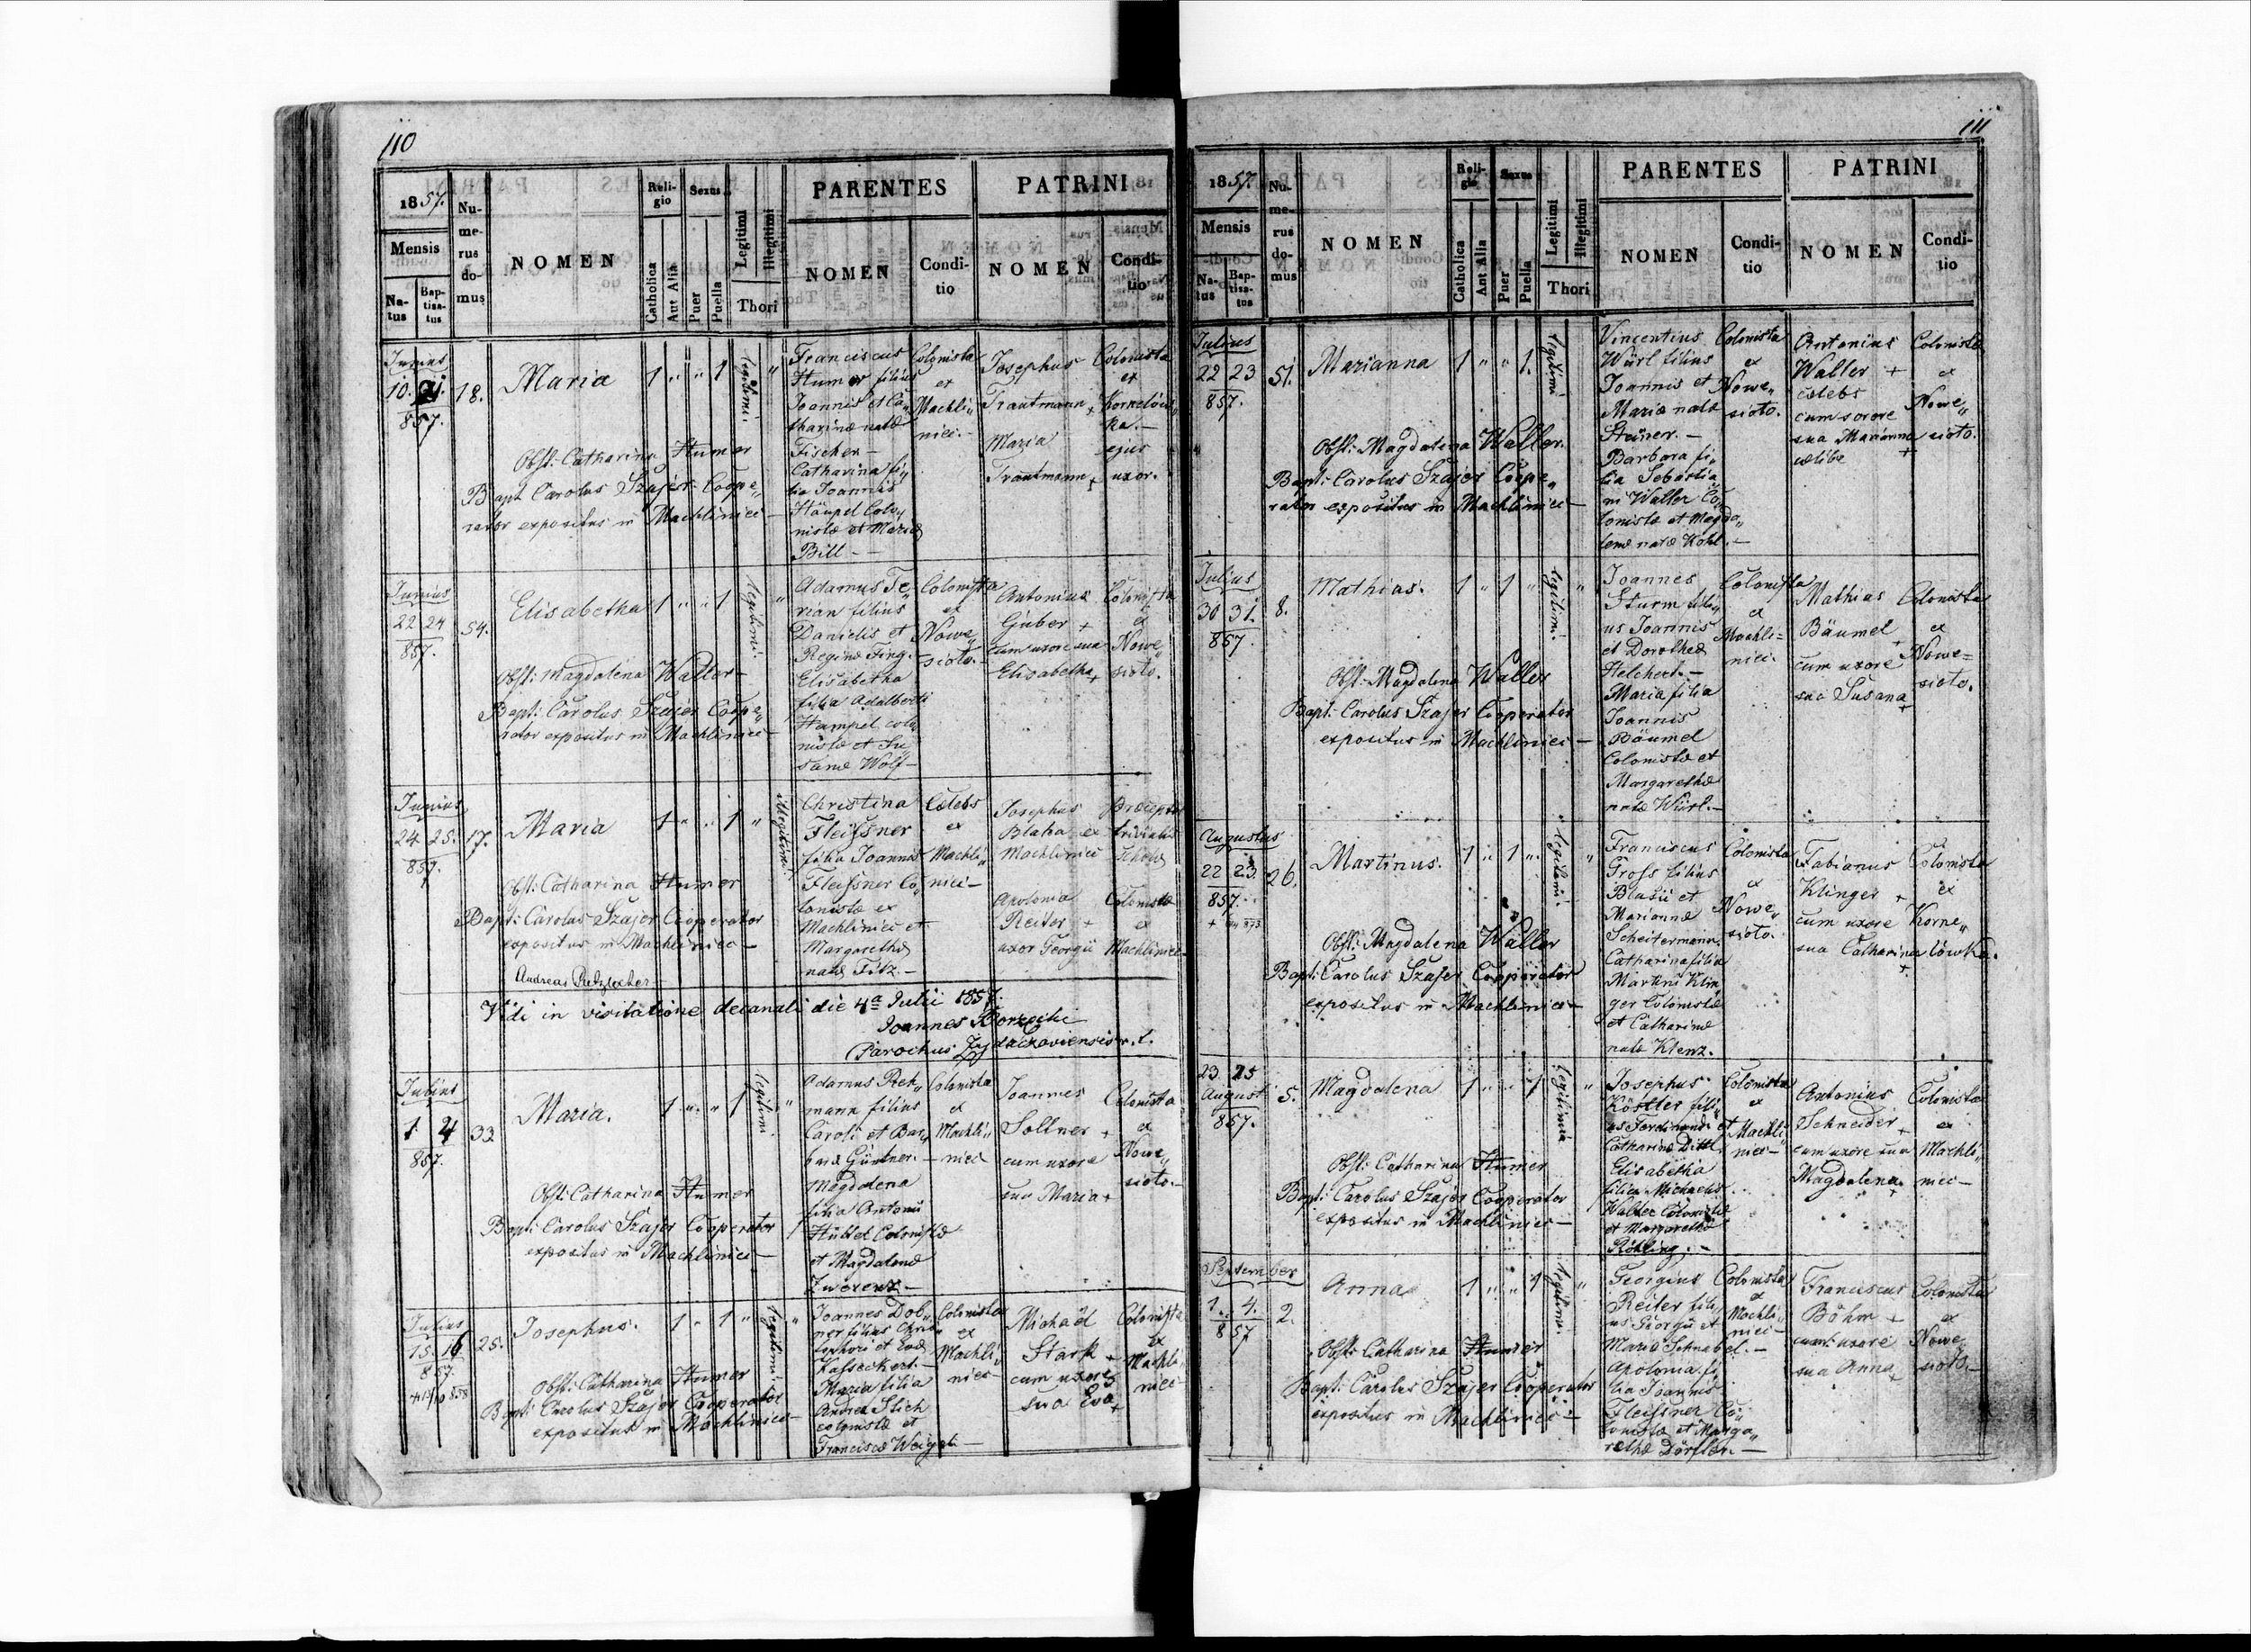 110
1857.
Mensis
Na-
tus
Bap-
tisa-
tus
Nu-
me-
rus
do-
mus
NOMEN
Reli-
gio
Catholica
Aut Alia
Sexus
Puer
Puella
Legitimi
Illegitimi
Thori
PARENTES
NOMEN
Condi-
tio
PATRINI
NOMEN
Condi-
tio
Junius
10.
857.
18.
Maria
1 " " 1
legitimi.
"
Obst: Catharina Humer
Bapt Carolus Szajer Coope„
rator expositus in Machlinice —
Franciscus
Humer filius
Joannis et Ca„
tharinæ natæ
Fischer —
Catharina fi„
lia Joannis
Häupel Colo„
nistæ et Mariæ
Bill —
Colonista
ex
Machli„
nice. —
Josephus
Trautmann +
Maria
Trautmann +
Colonista
ex
Kornelów„
ka. —
ejus
uxor.
Junius
22 24
857.
54.
Elisabetha
1 " " 1
legitimi.
"
Obst: Magdalena Waller —
Bapt: Carolus Szajer Coope„
rator expositus in Machlinice —
Adamus Te„
rian filius
Danielis et
Reginæ Fing. —
Elisabetha
filia Adalberti
Hampel colo„
nistæ et Su„
sanæ Wolf —
Colonista
ex
Nowe„
sioto. —
Antonius
Guber +
cum uxore sua
Elisabetha +
Colonista
ex
Nowe„
sioto.
Junius
24 25.
857.
17.
Maria
1 " " 1 "
illegitimi.
Obst: Catharina Humer
Bapt: Carolus Szajer Cooperator
expositus in Machlinice —
Christina
Fleissner
filia Joannis
Fleissner Co„
lonistæ ex
Machlinice et
Margarethæ
natæ Fitz. —
Cælebs
ex
Machli„
nice —
Josephus
Blaha ex
Machlinice
Apolonia
Reiter +
uxor Georgii
Præceptor
trivialis
Scholæ
Colonistæ
ex
Machlinice
Vidi in visitatione decanali die 4ª Julii 1857.
Joannes
Parochus
Julius
1 4
857.
33
Maria.
1 " " 1
legitimi
"
Obst: Catharina Humer
Bapt: Carolus Szajer Cooperator
expositus in Machlinice —
Adamus Rek„
mann filius
Caroli et Bar„
baræ Güntner. —
Magdalena
filia Antonii
Hüttel Colonistæ
et Magdalenæ
Zwerenz —
Colonista
ex
Machli„
nice
Joannes
Sollner +
cum uxore
sua Maria +
Colonista
ex
Nowe„
sioto. —
Julius
15. 16
857.
25.
Josephus.
1 " 1 "
legitimi
"
Obst: Catharina Humer
Bapt: Carolus Szajer Cooperator
expositus in Machlinice —
Joannes Dob„
ner filius Chris„
tophori et Evæ
Kasseckert. —
Maria filia
Andreæ Stich
colonistæ et
Franciscæ Weigel —
Colonista
ex
Machli„
nice —
Michaël
Stark +
cum uxore
sua Eva +
Colonista
ex
Machli„
nice —
111
1857.
Mensis
Na-
tus
Bap-
tisa-
tus
Nu-
me-
rus
do-
mus
NOMEN
Reli-
gio
Catholica
Aut Alia
Sexus
Puer
Puella
Legitimi
Illegitimi
Thori
PARENTES
NOMEN
Condi-
tio
PATRINI
NOMEN
Condi-
tio
Julius
22 23
857.
51.
Marianna
1 " " 1.
legitimi
Obst: Magdalena Waller.
Bapt: Carolus Szajer Coope„
rator expositus in Machlinice —
Vincentius
Würl filius
Joannis et
Mariæ natæ
Steiner. —
Barbara fi„
lia Sebastia„
ni Waller Co„
lonistæ et Magda„
lenæ natæ Kohl. —
Colonista
ex
Nowe„
sioto.
Antonius
Waller +
cælebs
cum sorore
sua Marianna
cælibe +
Colonista
ex
Nowe„
sioto.
Julius
30 31.
857
8.
Mathias.
1 " 1 "
legitimi
"
Obst: Magdalena Waller
Bapt: Carolus Szajer Cooperator
expositus in Machlinice —
Joannes
Sturm fili„
us Joannis
et Dorotheæ
Helchert. —
Maria filia
Joannis
Bäumel
Colonistæ et
Margarethæ
natæ Würl. —
Colonista
ex
Machli=
nice.
Mathias
Bäumel +
cum uxore
sua Susana +
Colonista
ex
Nowe=
sioto.
Augustus
22 23
857.
26.
Martinus.
1 " 1 "
legitimi.
"
Obst: Magdalena Waller
Bapt: Carolus Szajer Cooperator
expositus in Machlinice —
Franciscus
Gross filius
Blasii et
Mariannæ
Scheitermann.
Catharina filia
Martini Klin„
ger Colonistæ
et Catharinæ
natæ Klenz.
Colonista
ex
Nowe„
sioto.
Fabianus
Klinger +
cum uxore
sua Catharina +
Colonista
ex
Korne„
lówka.
23 25
August
857.
5.
Magdalena
1 " " 1
legitimi
"
Obst: Catharina Humer
Bapt: Carolus Szajer Cooperator
expositus in Machlinice —
Josephus
Köstler fili„
us Ferdinandi et
Catharinæ Dittl.
Elisabetha
filia Michaelis
Walter Colonistæ
et Margarethæ
Röhling. —
Colonista
ex
Machli„
nice —
Antonius
Schneider +
cum uxore sua
Magdalena +
Colonista
ex
Machli„
nice —
September
1. 4.
857
2.
Anna
1 " " 1
legitimi.
"
Obst: Catharina Humer
Bapt: Carolus Szajer Cooperator
expositus in Machlinice —
Georgius
Reiter fili„
us Georgii et
Mariæ Schnabel. —
Apolonia fi„
lia Joannis
Fleissner Co„
lonistæ et Marga„
rethæ Dörfler. —
Colonista
ex
Machli„
nice —
Franciscus
Böhm +
cum uxore
sua Anna +
Colonista
ex
Nowe„
sioto. —